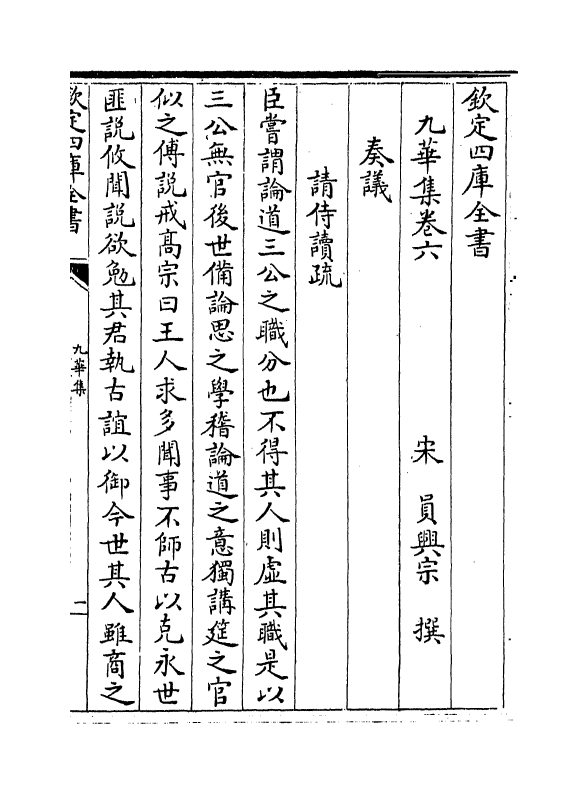 欽定四庫全書
九華集卷六
宋 員興宗 撰
奏議
請侍讀疏
臣嘗謂論道三公之職分也不得其人則虛其職是以
三公無官後世備論思之學稽論道之意獨講筵之官
似之傅說戒髙宗曰王人求多聞事不師古以克永世
匪說攸聞說欲勉其君執古誼以御今世其人雖商之
欽定四庫全書
九華集
二